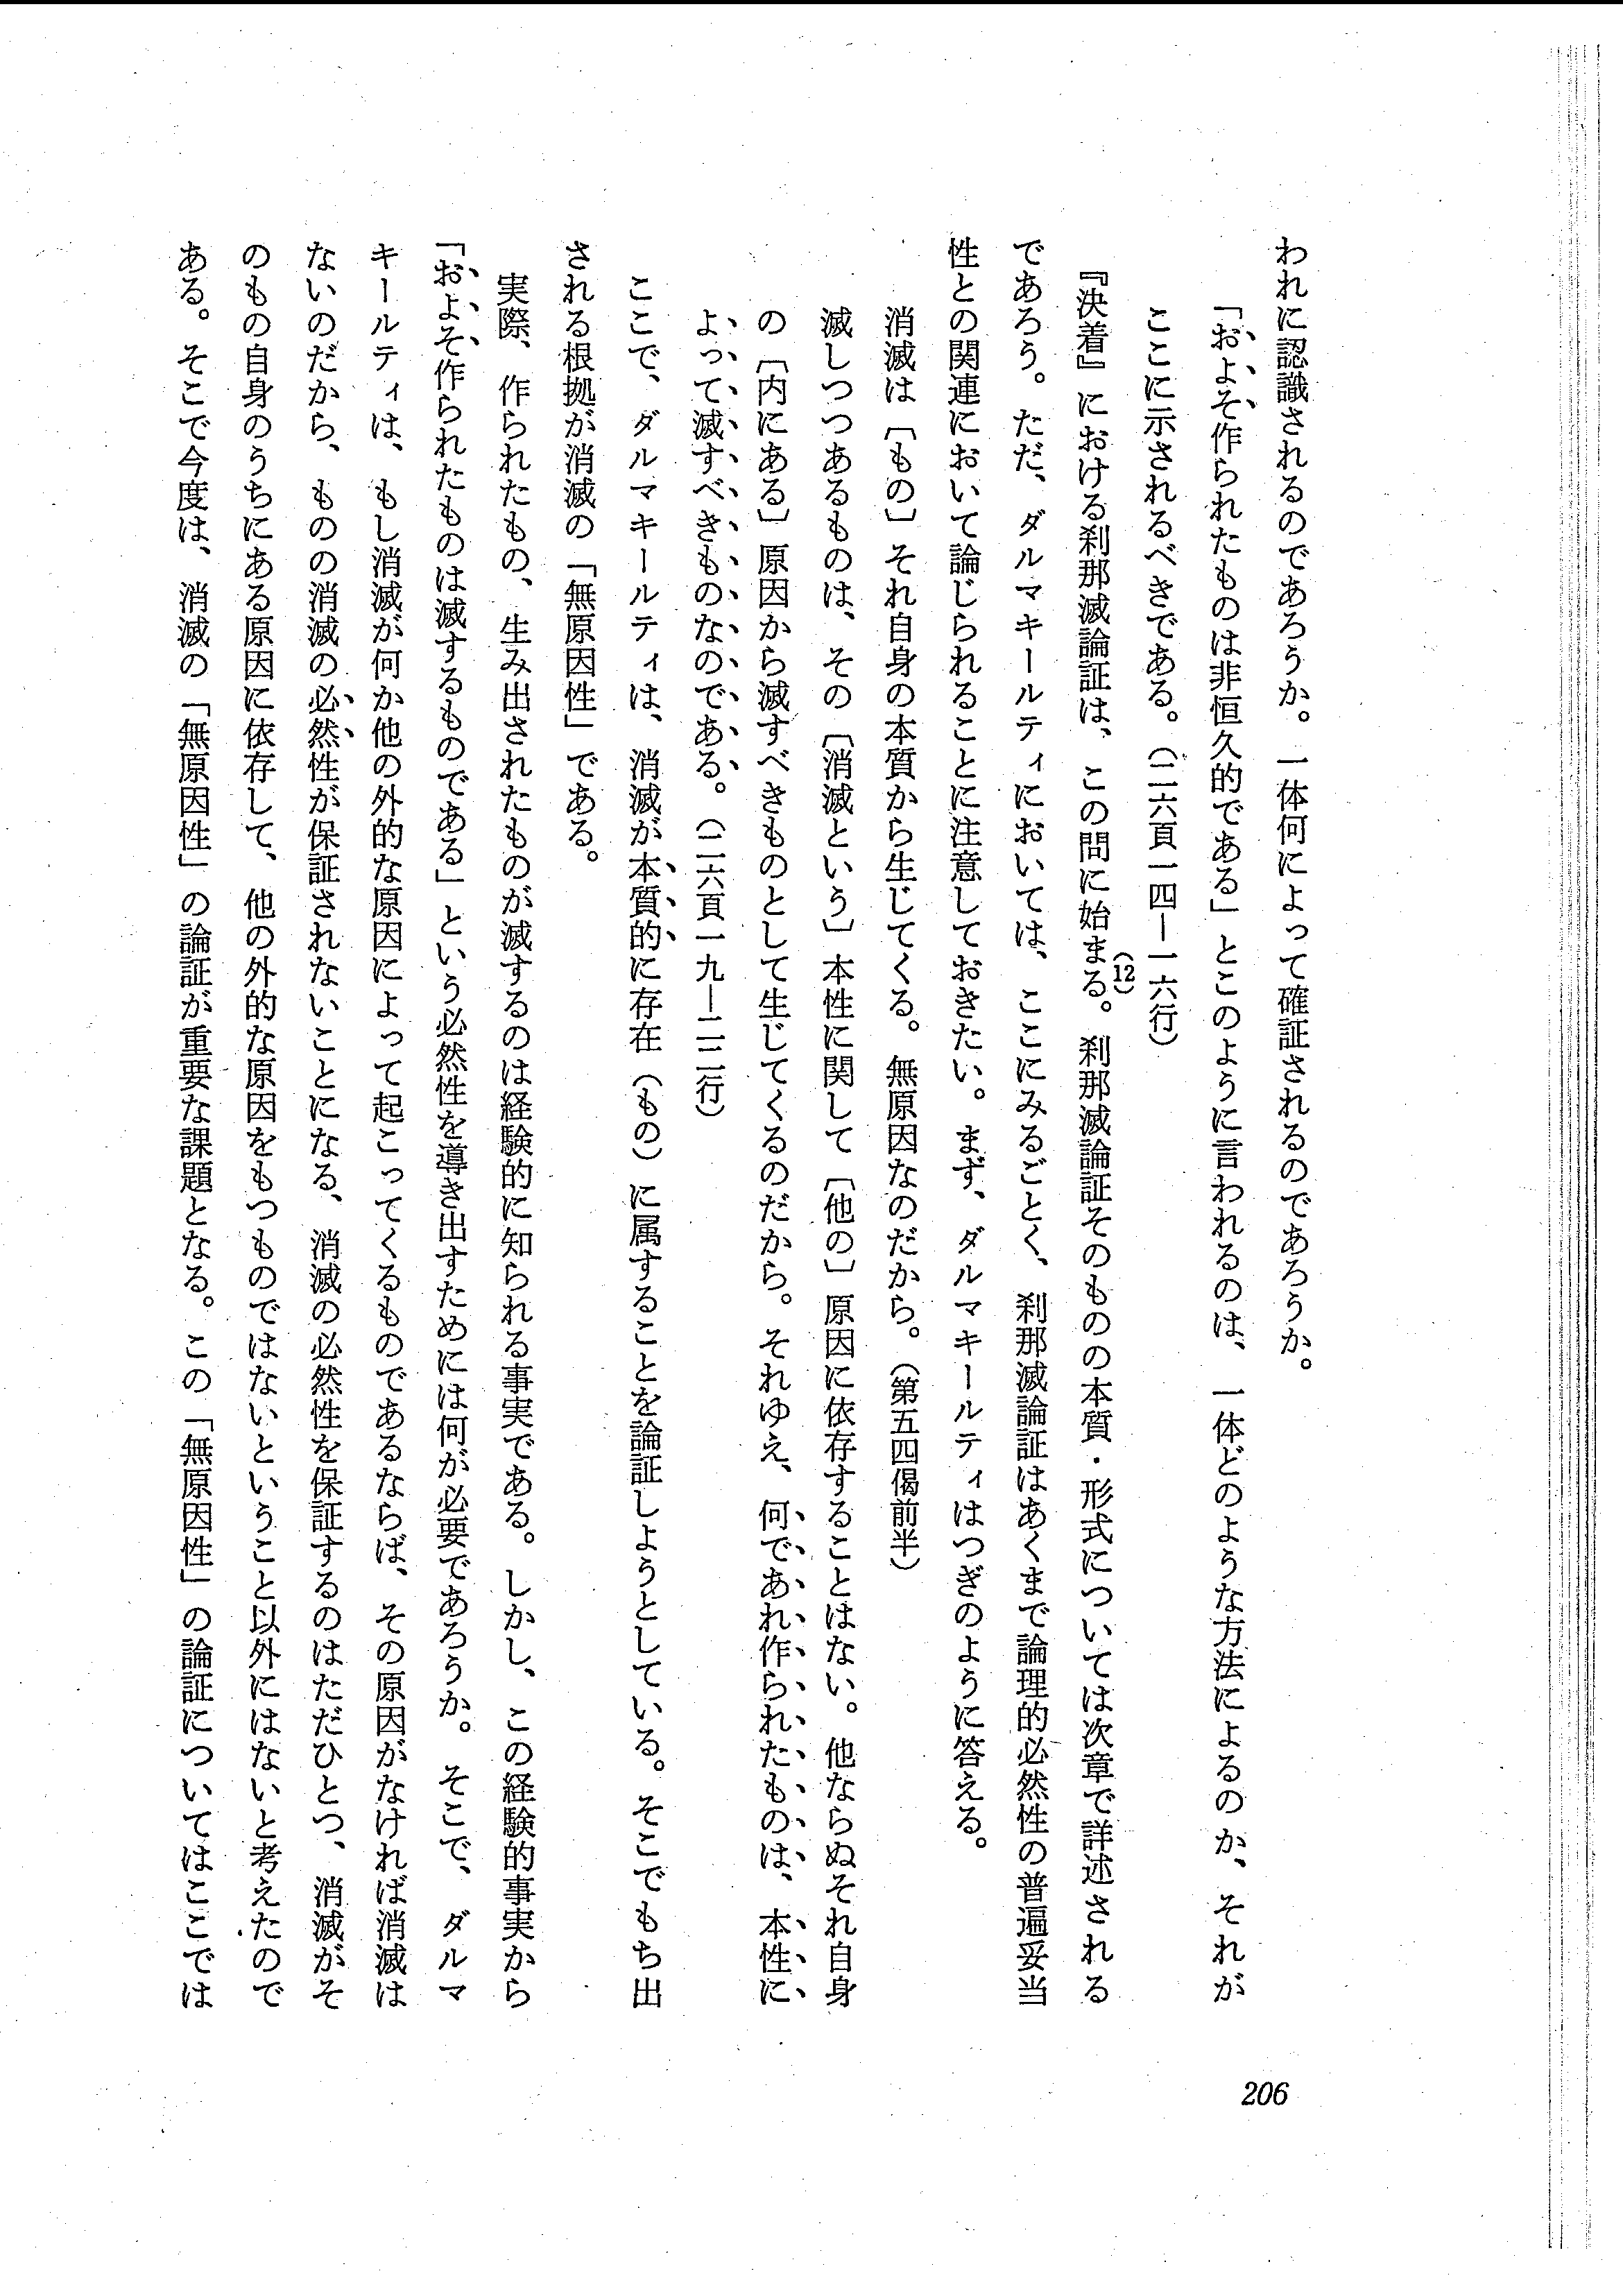 われに認識されるのであろうか。一体何によって確証されるのであろうか。
「およそ作られたものは非恒久的である」とこのように言われるのは、一体どのような方法によるのか、それが
ここに示されるべきである。（二六頁一四―一六行）
『決着』における刹那滅論証は、この問に始まる。(12)刹那滅論証そのものの本質・形式については次章で詳述される
であろう。ただ、ダルマキールティにおいては、ここにみるごとく、刹那滅論証はあくまで論理的必然性の普遍妥当
性との関連において論じられることに注意しておきたい。まず、ダルマキールティはつぎのように答える。
消滅は〔もの〕それ自身の本質から生じてくる。無原因なのだから。（第五四偈前半）
滅しつつあるものは、その〔消滅という〕本性に関して〔他の〕原因に依存することはない。他ならぬそれ自身
の〔内にある〕原因から滅すべきものとして生じてくるのだから。それゆえ、何であれ作られたものは、本性に
よって滅すべきものなのである。（二六頁一九―二二行）
ここで、ダルマキールティは、消滅が本質的に存在（もの）に属することを論証しようとしている。そこでもち出
される根拠が消滅の「無原因性」である。
実際、作られたもの、生み出されたものが滅するのは経験的に知られる事実である。しかし、この経験的事実から
「およそ作られたものは滅するものである」という必然性を導き出すためには何が必要であろうか。そこで、ダルマ
キールティは、もし消滅が何か他の外的な原因によって起こってくるものであるならば、その原因がなければ消滅は
ないのだから、ものの消滅の必然性が保証されないことになる、消滅の必然性を保証するのはただひとつ、消滅がそ
のもの自身のうちにある原因に依存して、他の外的な原因をもつものではないということ以外にはないと考えたので
ある。そこで今度は、消滅の「無原因性」の論証が重要な課題となる。この「無原因性」の論証についてはここでは
206